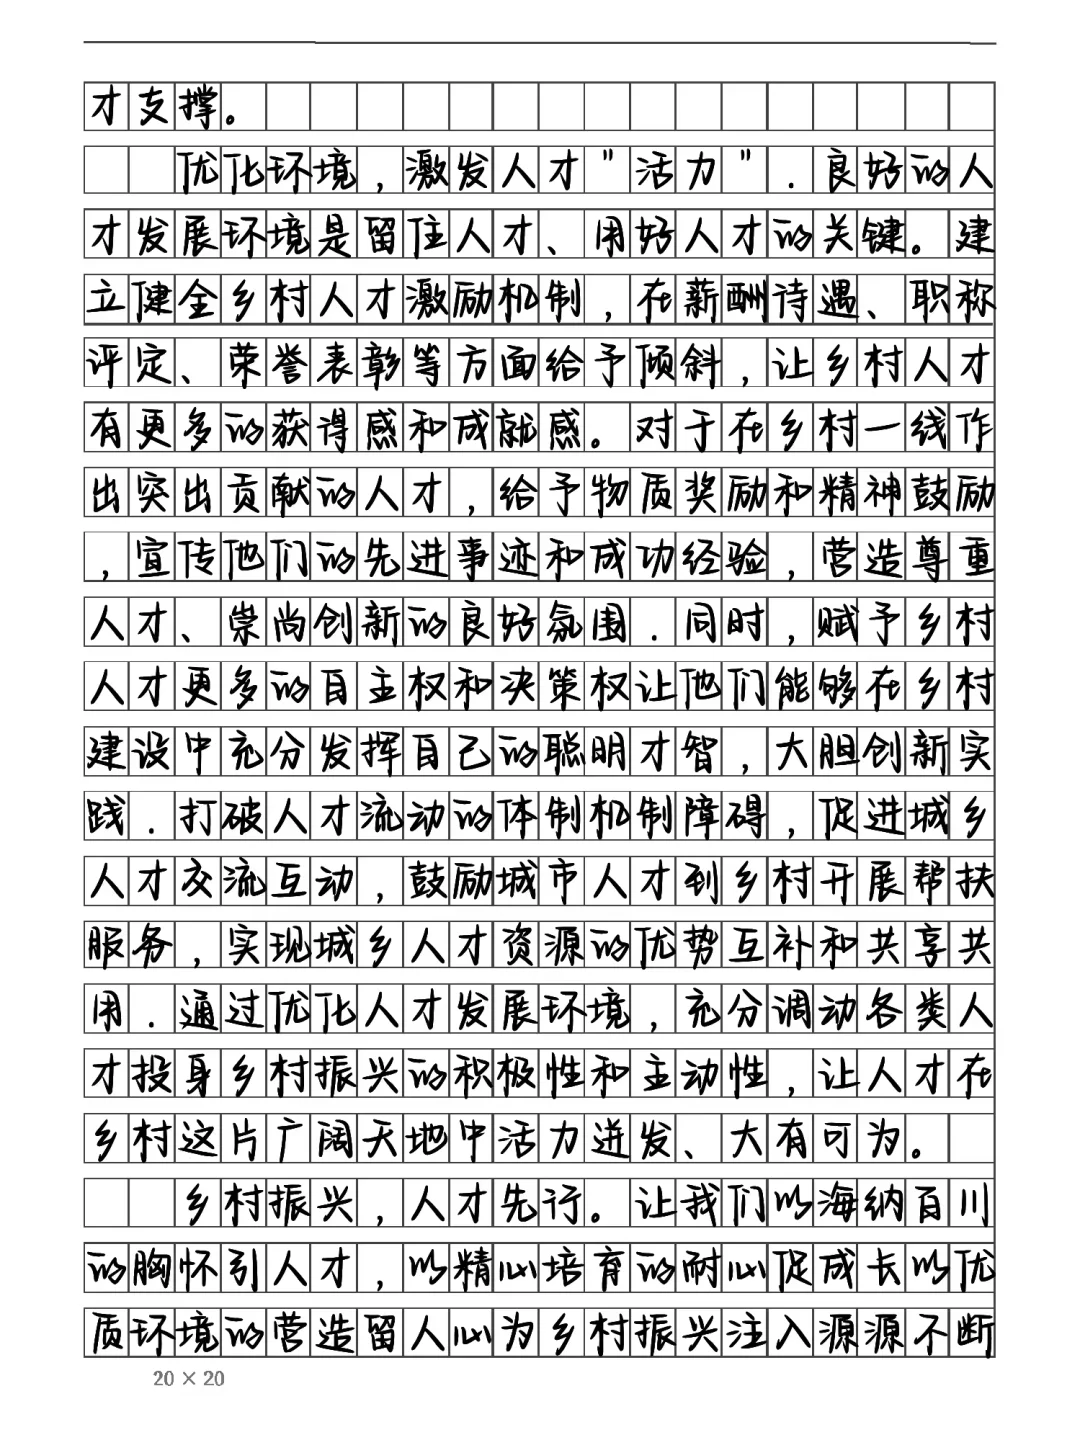 才支撑。
优化环境，激发人才"活力"．良好的人
才发展环境是留住人才、用好人才的关键。建
立健全乡村人才激励机制，在薪酬待遇、职称
评定、荣誉表彰等方面给予倾斜，让乡村人才
有更多的获得感和成就感。对于在乡村一线作
出突出贡献的人才，给予物质奖励和精神鼓励
，宣传他们的先进事迹和成功经验，营造尊重
人才、崇尚创新的良好氛围．同时，赋予乡村
人才更多的自主权和决策权让他们能够在乡村
建设中充分发挥自己的聪明才智，大胆创新实
践．打破人才流动的体制机制障碍，促进城乡
人才交流互动，鼓励城市人才到乡村开展帮扶
服务，实现城乡人才资源的优势互补和共享共
用．通过优化人才发展环境，充分调动各类人
才投身乡村振兴的积极性和主动性，让人才在
乡村这片广阔天地中活力迸发、大有可为。
乡村振兴，人才先行。让我们以海纳百川
的胸怀引人才，以精心培育的耐心促成长以优
质环境的营造留人心为乡村振兴注入源源不断
20×20